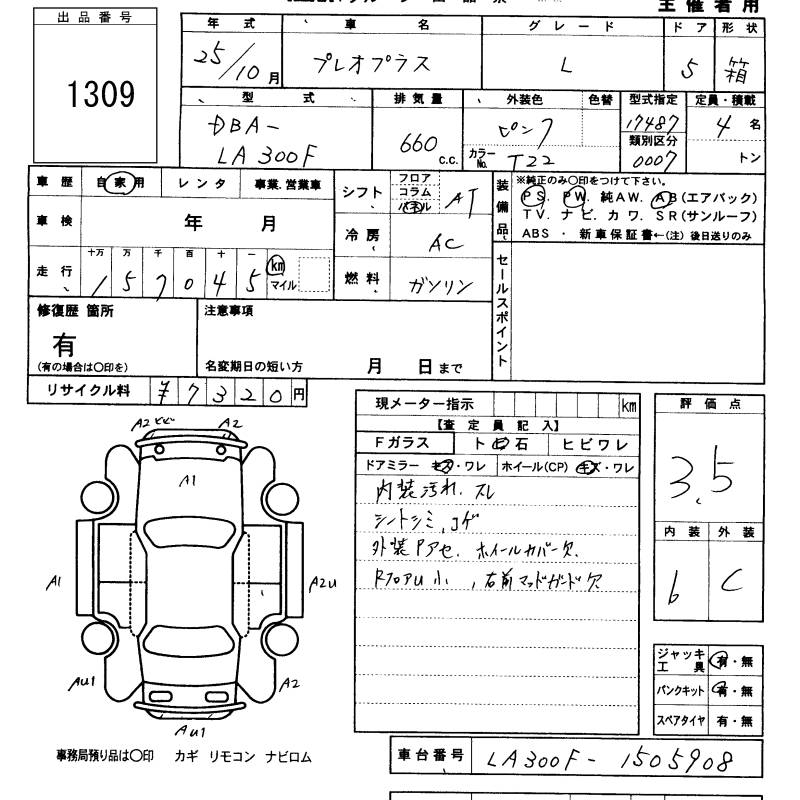 主催者用
出品番号
1309
年式 車名 グレード ドア 形状
25/10月 プレオプラス L 5 箱
型式 排気量 外装色 色替 型式指定 定員・積載
DBA-
LA300F
660 c.c.
ピンク
カラーNo. T22
17487
類別区分
0007
4名
トン
車歴 自家用 レンタ 事業.営業車
車検 年 月
走行 十万 万 千 百 十 一
157045 km マイル
シフト フロア コラム パネル AT
冷房 AC
燃料 ガソリン
装備品
※純正のみ〇印をつけて下さい。
PS. PW. 純AW. AB(エアバック)
TV. ナビ. カワ. SR(サンルーフ)
ABS ・ 新車保証書←(注) 後日送りのみ
セールスポイント
修復歴 箇所
有
(有の場合は〇印を)
注意事項
名変期日の短い方 月 日まで
リサイクル料 ¥7320円
現メーター指示 km
【査定員記入】
Fガラス トビ石 ヒビワレ
ドアミラー キズ・ワレ ホイール(CP) キズ・ワレ
内装汚れ.スレ
シートシミ.コゲ
外装Pアセ. ホイールカバー欠.
RフロアU小 , 右前マッドガード欠
評価点
3.5
内装 外装
b C
A2 ビビ A2
A1
A1 A2U
AU1 A2
AU1
ジャッキ工具 有・無
パンクキット 有・無
スペアタイヤ 有・無
事務局預り品は〇印 カギ リモコン ナビロム
車台番号 LA300F-1505908